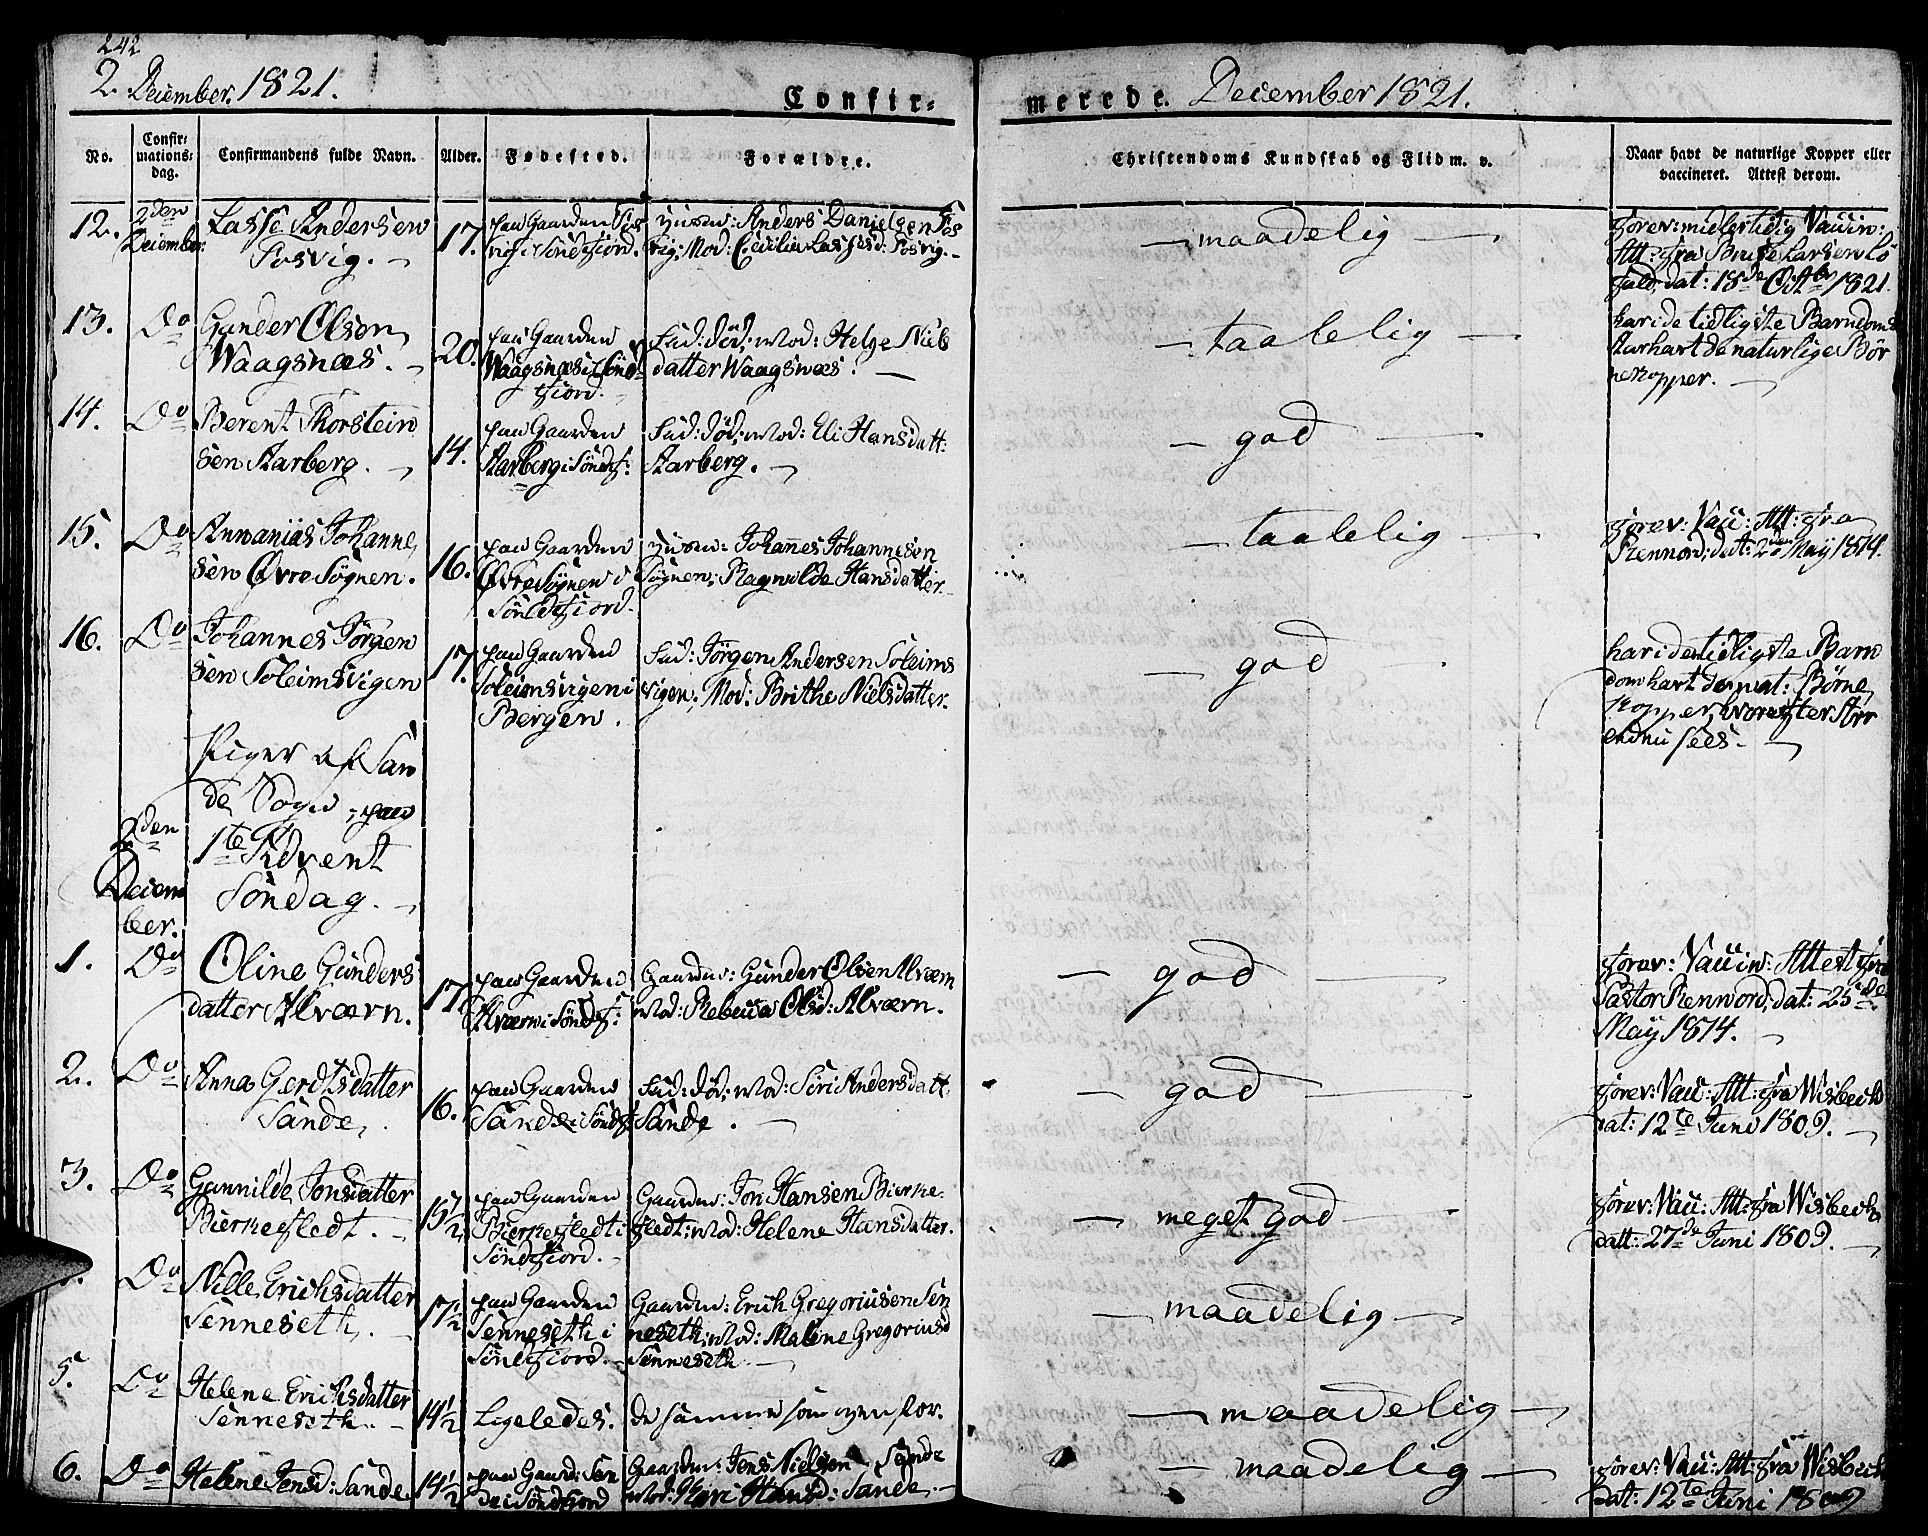 242
2. December. 1821.
Confir-
merede. December 1821.
No.
Confir-
mations-
dag.
Confirmandens fulde Navn.
Alder.
Fødested.
Forældre.
Christendoms Kundskab og Flid m. v.
Naar havt de naturlige Kopper eller
vaccineret. Attest derom.
12.
2den
December.
Lasse Andersen
Fosvig. -
17.
paa Gaarden Fos
vig i Søndfiord.
Huusm: Anders Danielsen Fos
vig; Mod: Cecilia Lassesd: Fosvig. -
- maadelig -
forev: midlertidig Vaccin:
Att: fra
dat: 18de Octbr 1821.
13.
Do
Gunder Olsen
Waagsnæs. -
20.
paa Gaarden
Waagsnæs i Sönd-
fiord.
Fad: död; Mod: Helge Niels
datter Waagsnæs. -
- taalelig -
har i de tidligste Barndoms
Aar havt de naturlige Bör
nekopper. -
14.
Do
Berent Thorstein
sen Aarberg. -
14.
paa Gaarden
Aarberg i Söndf:
Fad: död; Mod: Eli Hansdatt:
Aarberg. -
- god -
15.
Do
Annanias Johanne
sen Øvre Sögnen.
16.
paa Gaarden
Øvre Sögnen i
Söndfiord.
Huusm: Johannes Johannesen
Sögnen; Ragnilde Hansdatter.
- taalelig -
forev: Vacc: Att: fra
Rennord; dat: 2den May 1814.
16.
Do
Johannes Jörgen
sen Soleimsvigen
17.
paa Gaarden
Soleimsvigen i
Bergen.
Fad: Jörgen Andersen Soleims
vigen; Mod: Brithe Nielsdatter.
- god
har i de tidligste Barn
dom havt de nat: Börne
Kopper, hvorefter Arr
endnu sees. -
Piger af San
de Sogn, paa
1te Advent
Söndag. -
2den
Decem
ber.
1.
Do
Oline Gunders
datter Alværn.
17.
paa Gaarden
Alværn i Söndf:
Gaardm: Gunder Olsen Alværn
Mod: Rebecca Olsd: Alværn.
- god -
forev: Vaccin: Attest fra
Pastor Rennord, dat: 25de
May 1814. -
2.
Do
Anna Gerdtsdatter
Sande.
16.
paa Gaarden
Sande i Söndf
Fad: död; Mod: Siri Andersdatt:
Sande. -
- god -
forev: Vacc: Att: fra Wisbech
dat: 12te Juni 1809. -
3.
Do
Gunnilde Jonsdatter
Bierkefledt. -
15½
paa Gaarden
Bierkefledt i
Söndfiord. -
Gaardm: Jon Hansen Bierke-
fledt; Mod: Helene Hansdatter.
- meget god -
forev: Vacc: Att: fra Wisbech
datt: 27de Juni 1809. -
Do
Nille Erichsdatter
Senneseth. -
17½
paa Gaarden
Senneseth i
Söndfiord. -
Gaardm: Erich Gregoriusen Sen
neseth; Mod: Malene Gregoriusd
Senneseth. -
- maadelig -
5.
Do
Helene Erichsdatter
Senneseth. -
14½
Ligeledes.
de samme som ovenfor.
- maadelig -
6.
Do
Helene Jensd: Sande
14½
paa Gaard: San
de i Söndfiord
Gaardm: Jens Nielsen Sande
Mod: Kari Hansd: Sande. -
- maadelig -
forev: Vacc: Att: fra Wisbech
dat: 12te Juni 1809